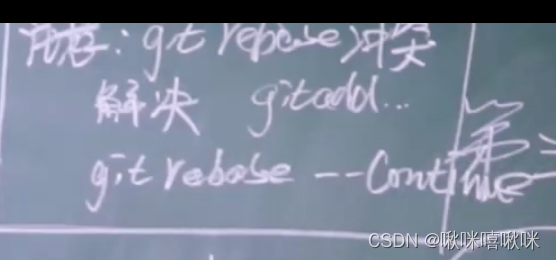 git rebase 冲突
解决 git add...
git rebase --Continue
CSDN @啾咪嘻啾咪